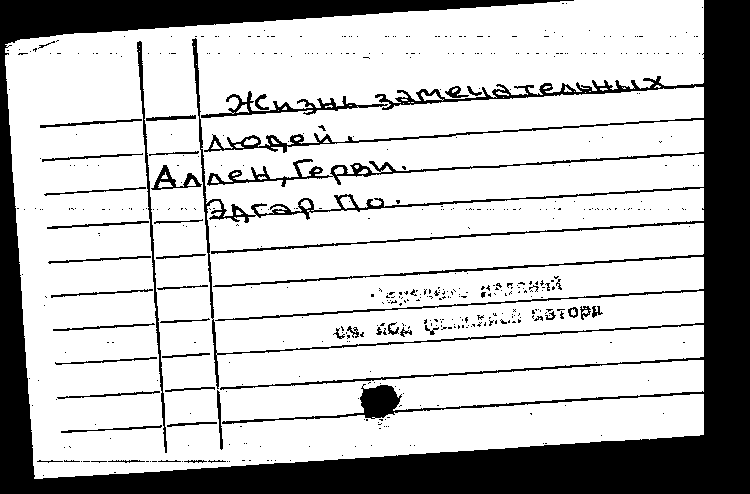 Жизнь замечательных
людей.
Аллен, Герви.
Эдгар По.
Перечень изданий
см. под фамилией автора